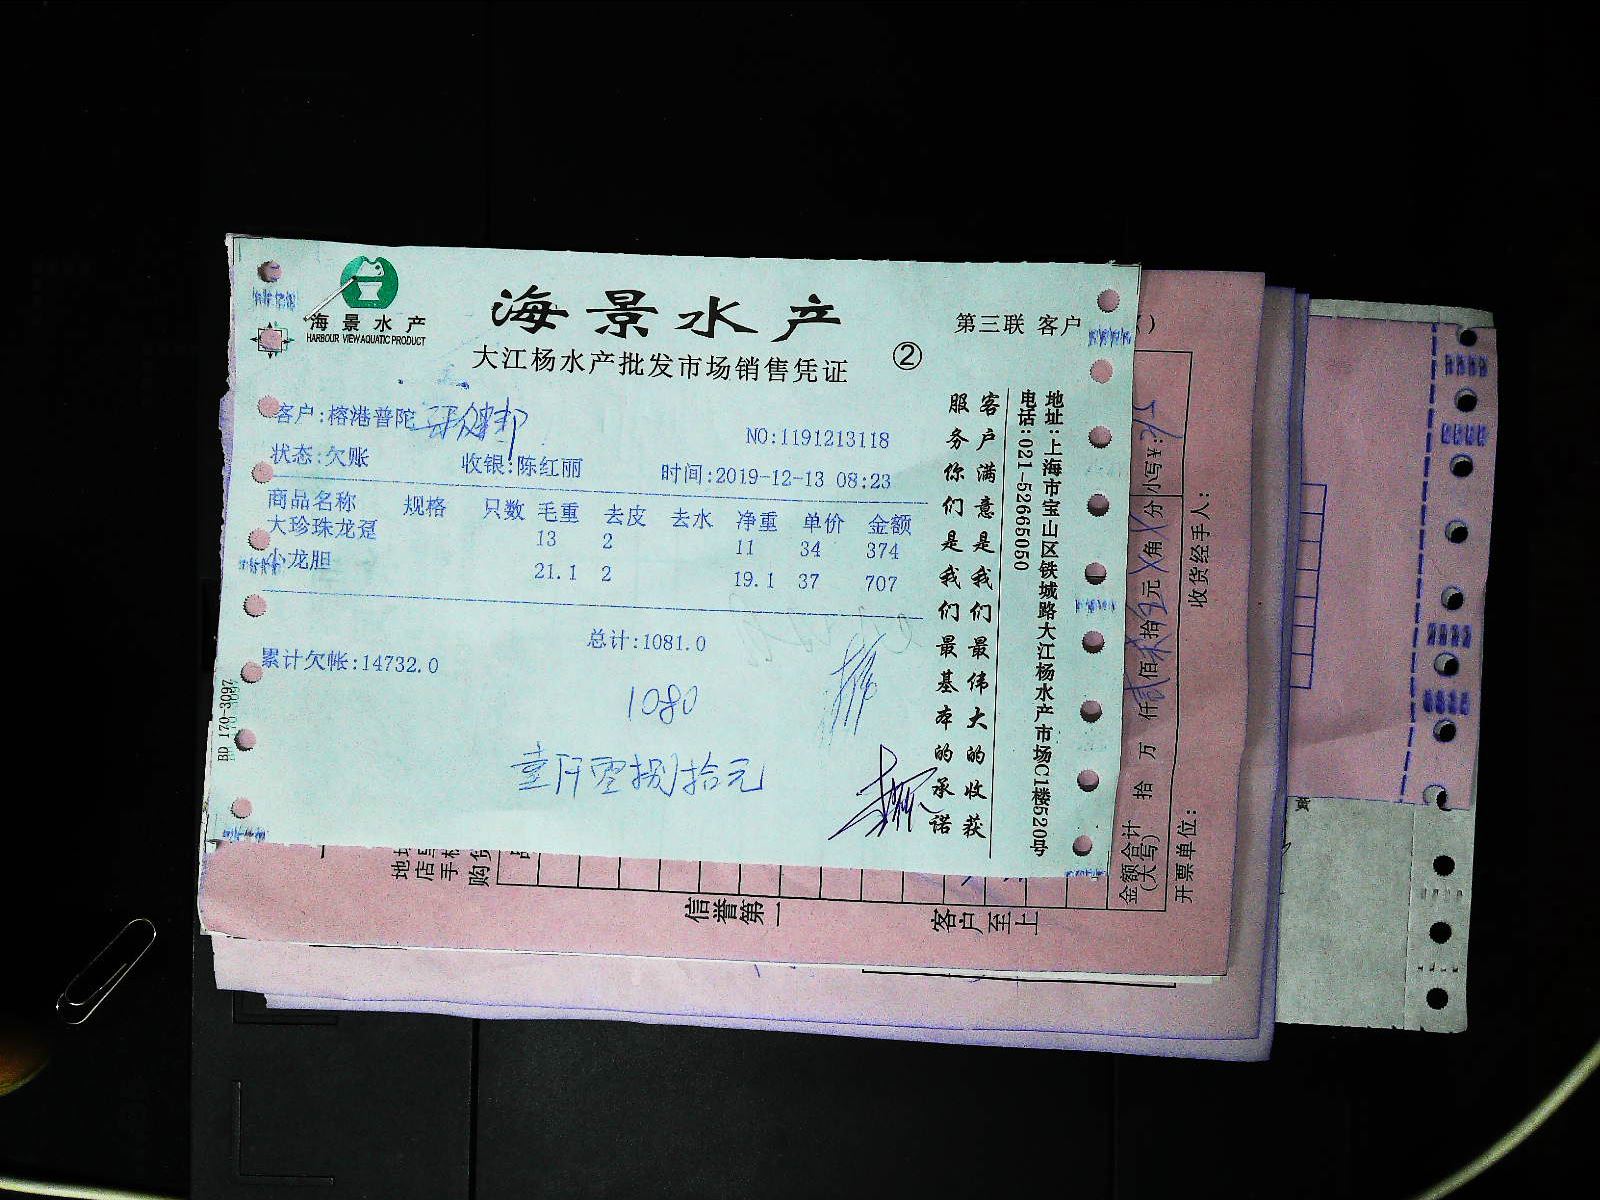 海景水产
HARBOUR VIEW AQUATIC PRODUCT
海景水产
大江杨水产批发市场销售凭证
②
第三联 客户
客户:榕港普陀
NO:1191213118
状态:欠账 收银:陈红丽 时间:2019-12-13 08:23
商品名称 规格 只数 毛重 去皮 去水 净重 单价 金额
大珍珠龙趸 13 2 11 34 374
小龙胆 21.1 2 19.1 37 707
总计:1081.0
累计欠帐:14732.0
1080
壹仟零捌拾元
客户满意是我们最伟大的收获
服务你们是我们最基本的承诺
地址:上海市宝山区铁城路大江杨水产市场C1楼520号
电话:021-52665050
BD 170-3097
信誉第一
客户至上
金额合计
(大写)
拾 万 仟 佰 拾 元 角 分 小写¥:
开票单位:
收货经手人: